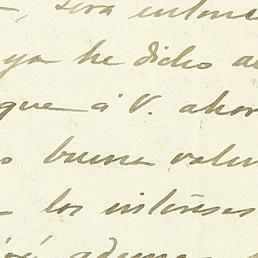 , será intens
ya he dicho a
que á V. ahor
buena volun
los intereses
además